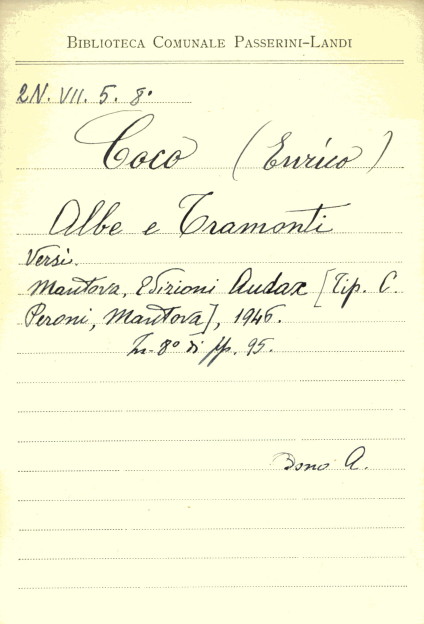 BIBLIOTECA COMUNALE PASSERINI-LANDI
2N. VII. 5. 8°
Coco (Enrico)
Albe e Tramonti
Versi.
Mantova, Edizioni Audax [Tip. C.
Peroni, Mantova], 1946.
In-8° di pp. 95.
Dono A.